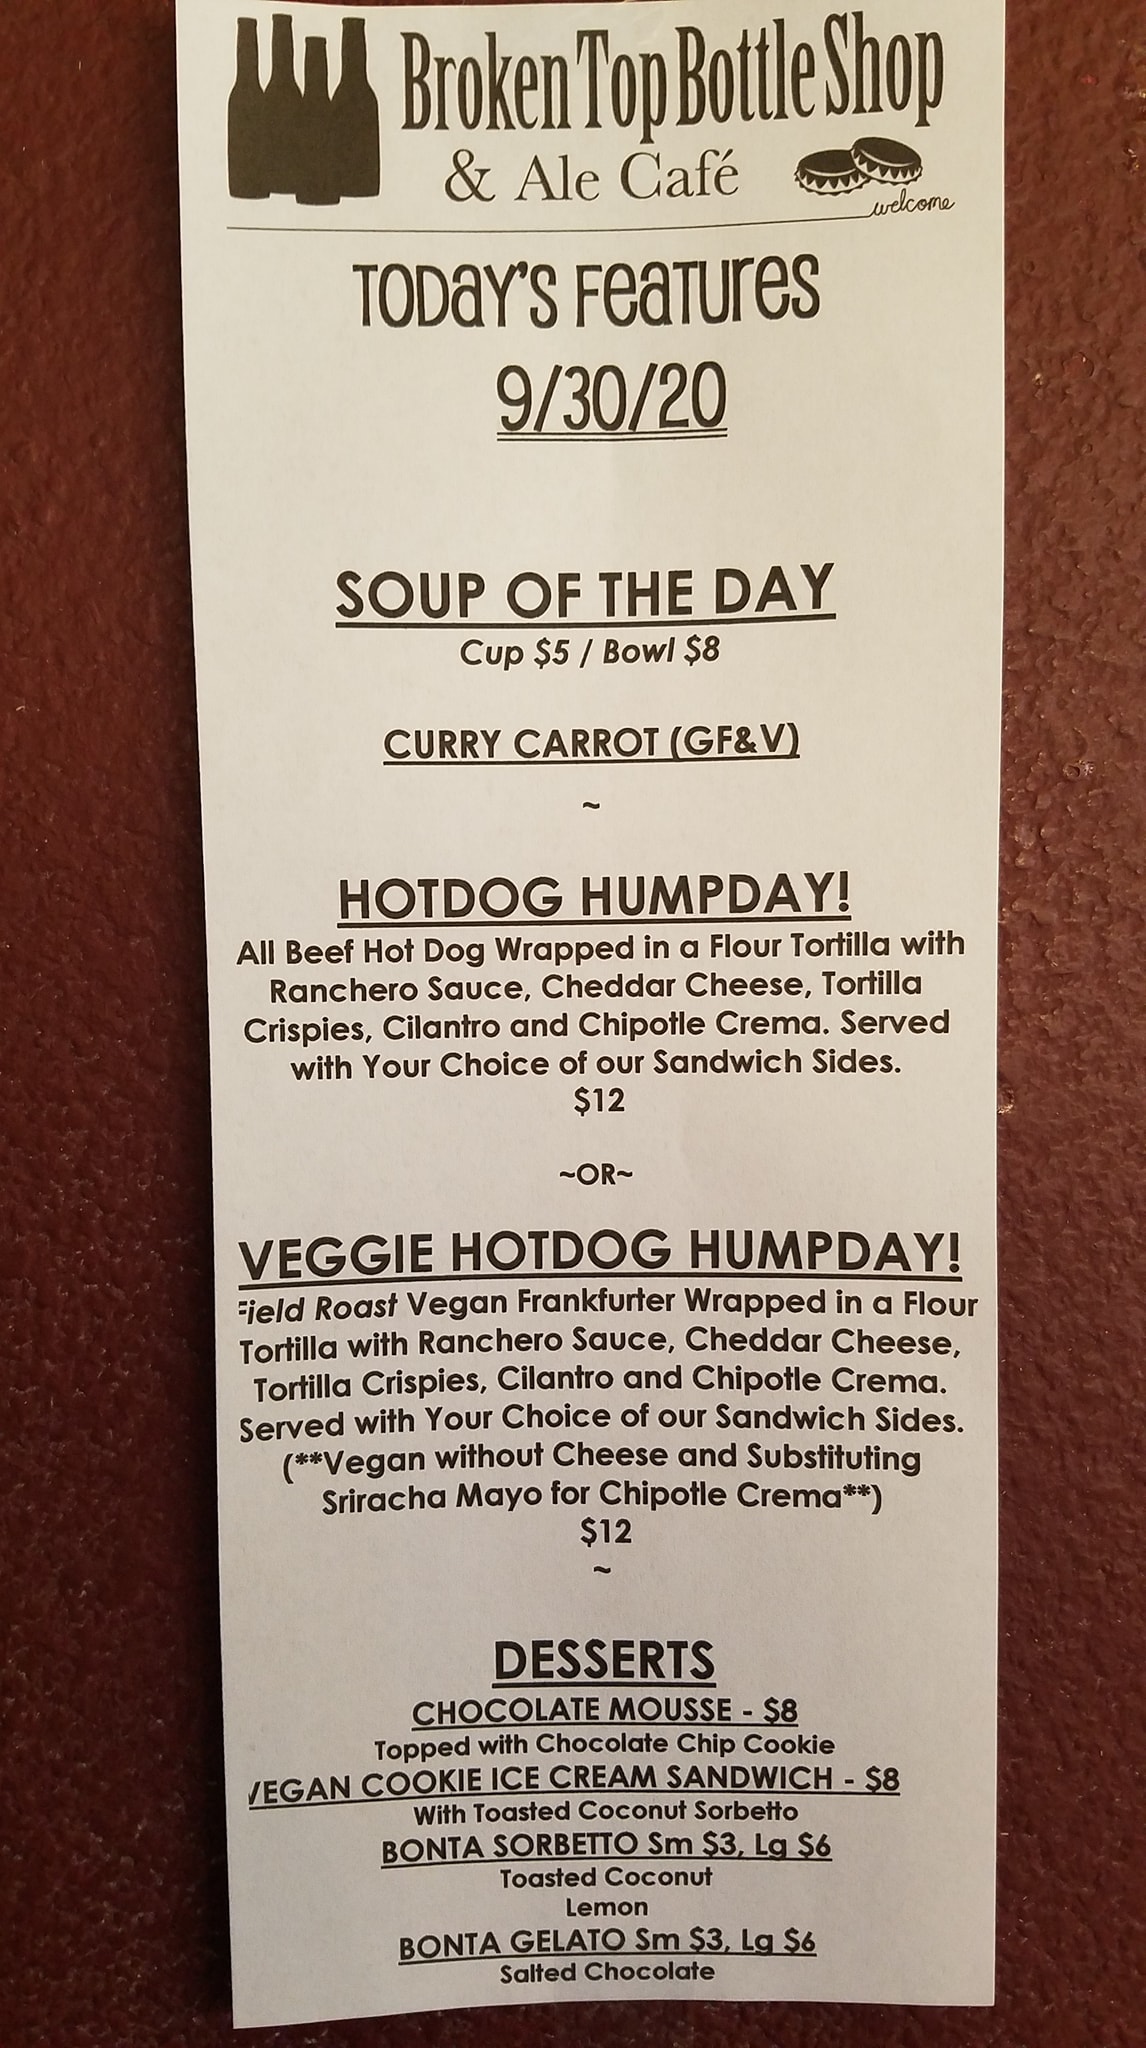 Broken Top Bottle Shop
& Ale Café
welcome
TODAY'S FEATURES
9/30/20
SOUP OF THE DAY
Cup $5 / Bowl $8
CURRY CARROT (GF&V)
~
HOTDOG HUMPDAY!
All Beef Hot Dog Wrapped in a Flour Tortilla with
Ranchero Sauce, Cheddar Cheese, Tortilla
Crispies, Cilantro and Chipotle Crema. Served
with Your Choice of our Sandwich Sides.
$12
~OR~
VEGGIE HOTDOG HUMPDAY!
Field Roast Vegan Frankfurter Wrapped in a Flour
Tortilla with Ranchero Sauce, Cheddar Cheese,
Tortilla Crispies, Cilantro and Chipotle Crema.
Served with Your Choice of our Sandwich Sides.
(**Vegan without Cheese and Substituting
Sriracha Mayo for Chipotle Crema**)
$12
~
DESSERTS
CHOCOLATE MOUSSE - $8
Topped with Chocolate Chip Cookie
VEGAN COOKIE ICE CREAM SANDWICH - $8
With Toasted Coconut Sorbetto
BONTA SORBETTO Sm $3, Lg $6
Toasted Coconut
Lemon
BONTA GELATO Sm $3, Lg $6
Salted Chocolate